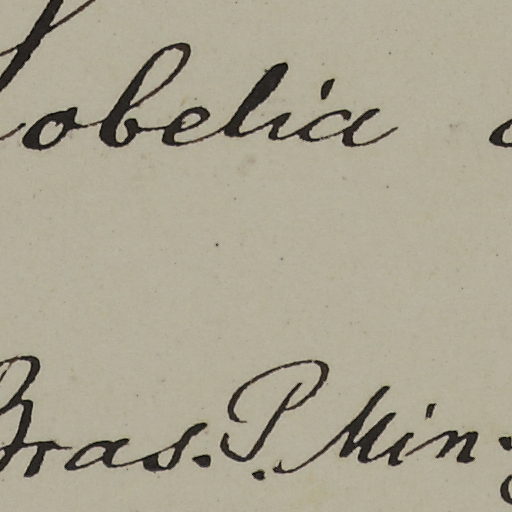 Lobelia
Bras. P. Min.